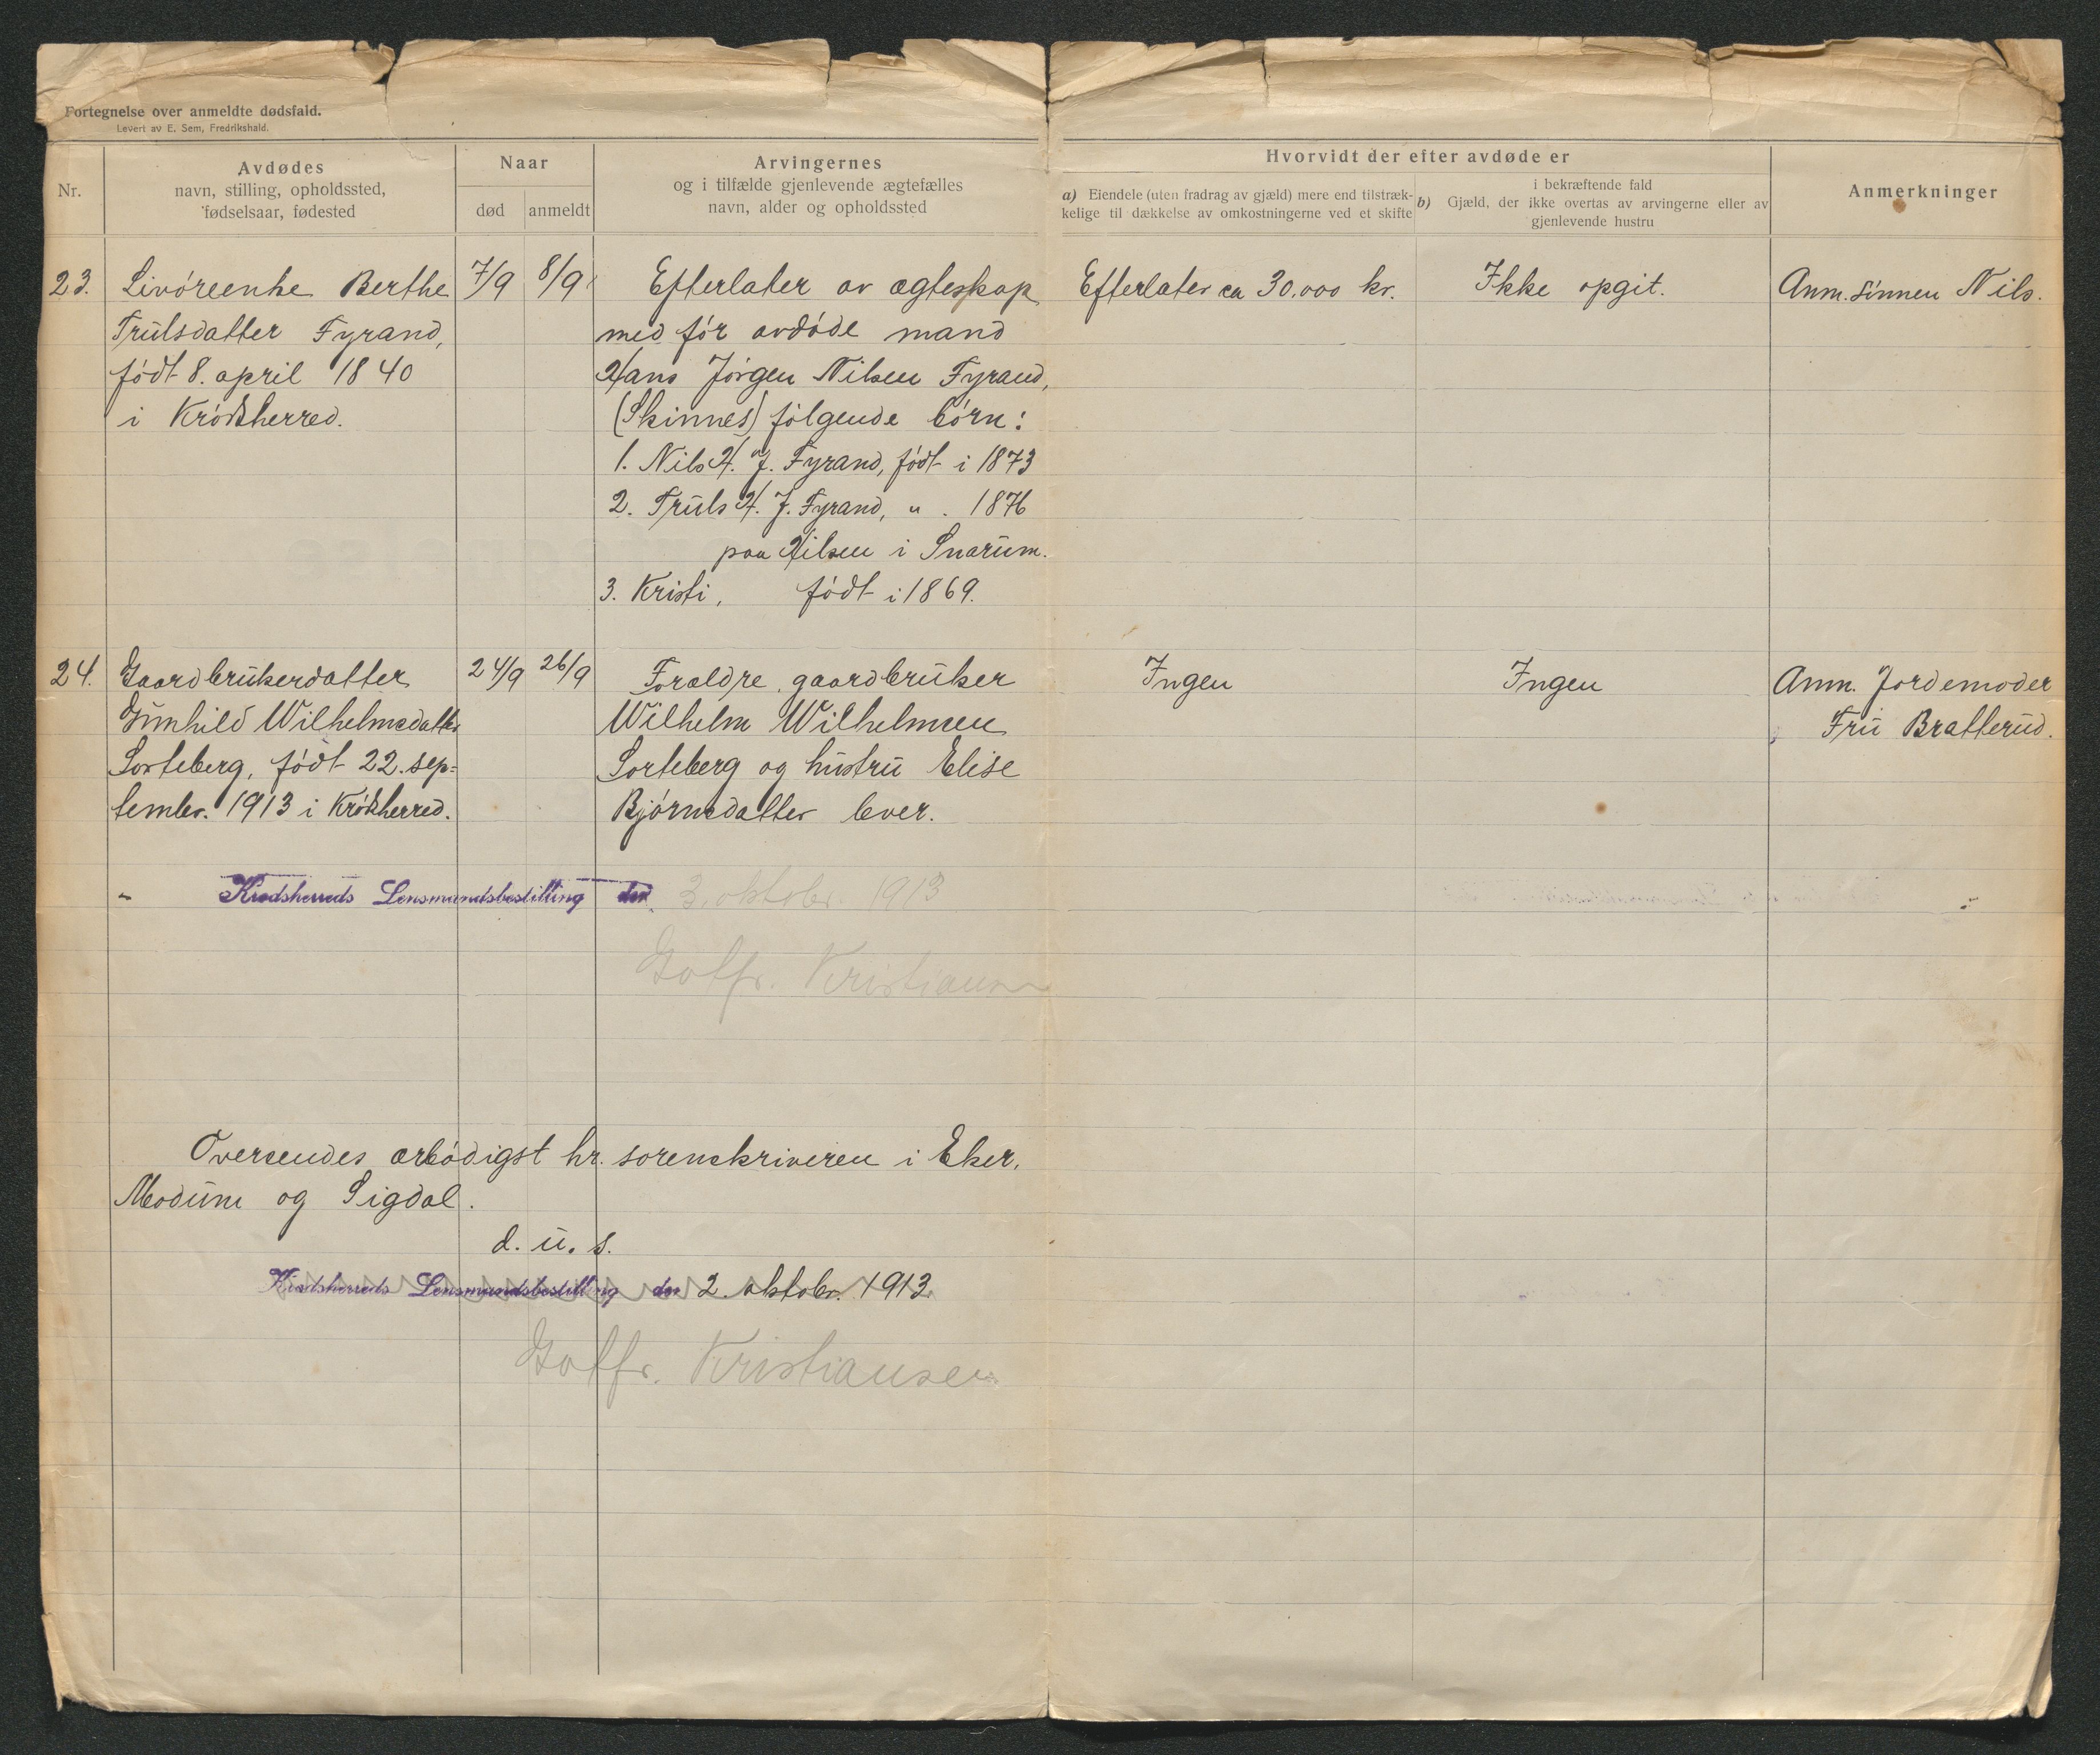 Fortegnelse over anmeldte dødsfald.
Levert av E. Sem, Fredrikshald.
Nr.
Avdødes
navn, stilling, opholdssted,
fødselsaar, fødested
Naar
død
anmeldt
Arvingernes
og i tilfælde gjenlevende ægtefælles
navn, alder og opholdssted
Hvorvidt der efter avdøde er
a) Eiendele (uten fradrag av gjæld) mere end tilstræk-
kelige til dækkelse av omkostningerne ved et skifte
i bekræftende fald
b) Gjæld, der ikke overtas av arvingerne eller av
gjenlevende hustru
Anmerkninger
23.
Livøreenke Berthe
Trulsdatter Fyrand,
født 8. april 1840
i Krødsherred.
7/9
8/9
Efterlater av ægteskap
med før avdøde mand
Hans Jørgen Nilsen Fyrand,
(Skinnes) følgende børn:
1. Nils H. J. Fyrand, født i 1873
2. Truls H. J. Fyrand, " . 1876
paa Hilsen i Snarum.
3. Kristi, født i 1869.
Efterlater ca 30.000 kr.
Ikke opgit.
Anm. sønnen Nils.
24.
Gaardbrukerdatter
Gunhild Wilhelmsdatter
Sorteberg, født 22. sep-
tember. 1913 i Krødsherred.
24/9
26/9
Forældre, gaardbruker
Wilhelm Wilhelmsen
Sorteberg og hustru Elise
Bjørnsdatter lever.
Ingen
Ingen
Anm. Jordemoder
Fru Bratterud.
Krødsherreds Lensmandsbestilling den 3. oktober. 1913
Gotfr. Kristiansen
Oversendes ærbødigst hr. sorenskriveren i Eker,
Modum og Sigdal.
d. u. s.
Krødsherreds Lensmandsbestilling den 2. oktober. 1913
Gotfr. Kristiansen